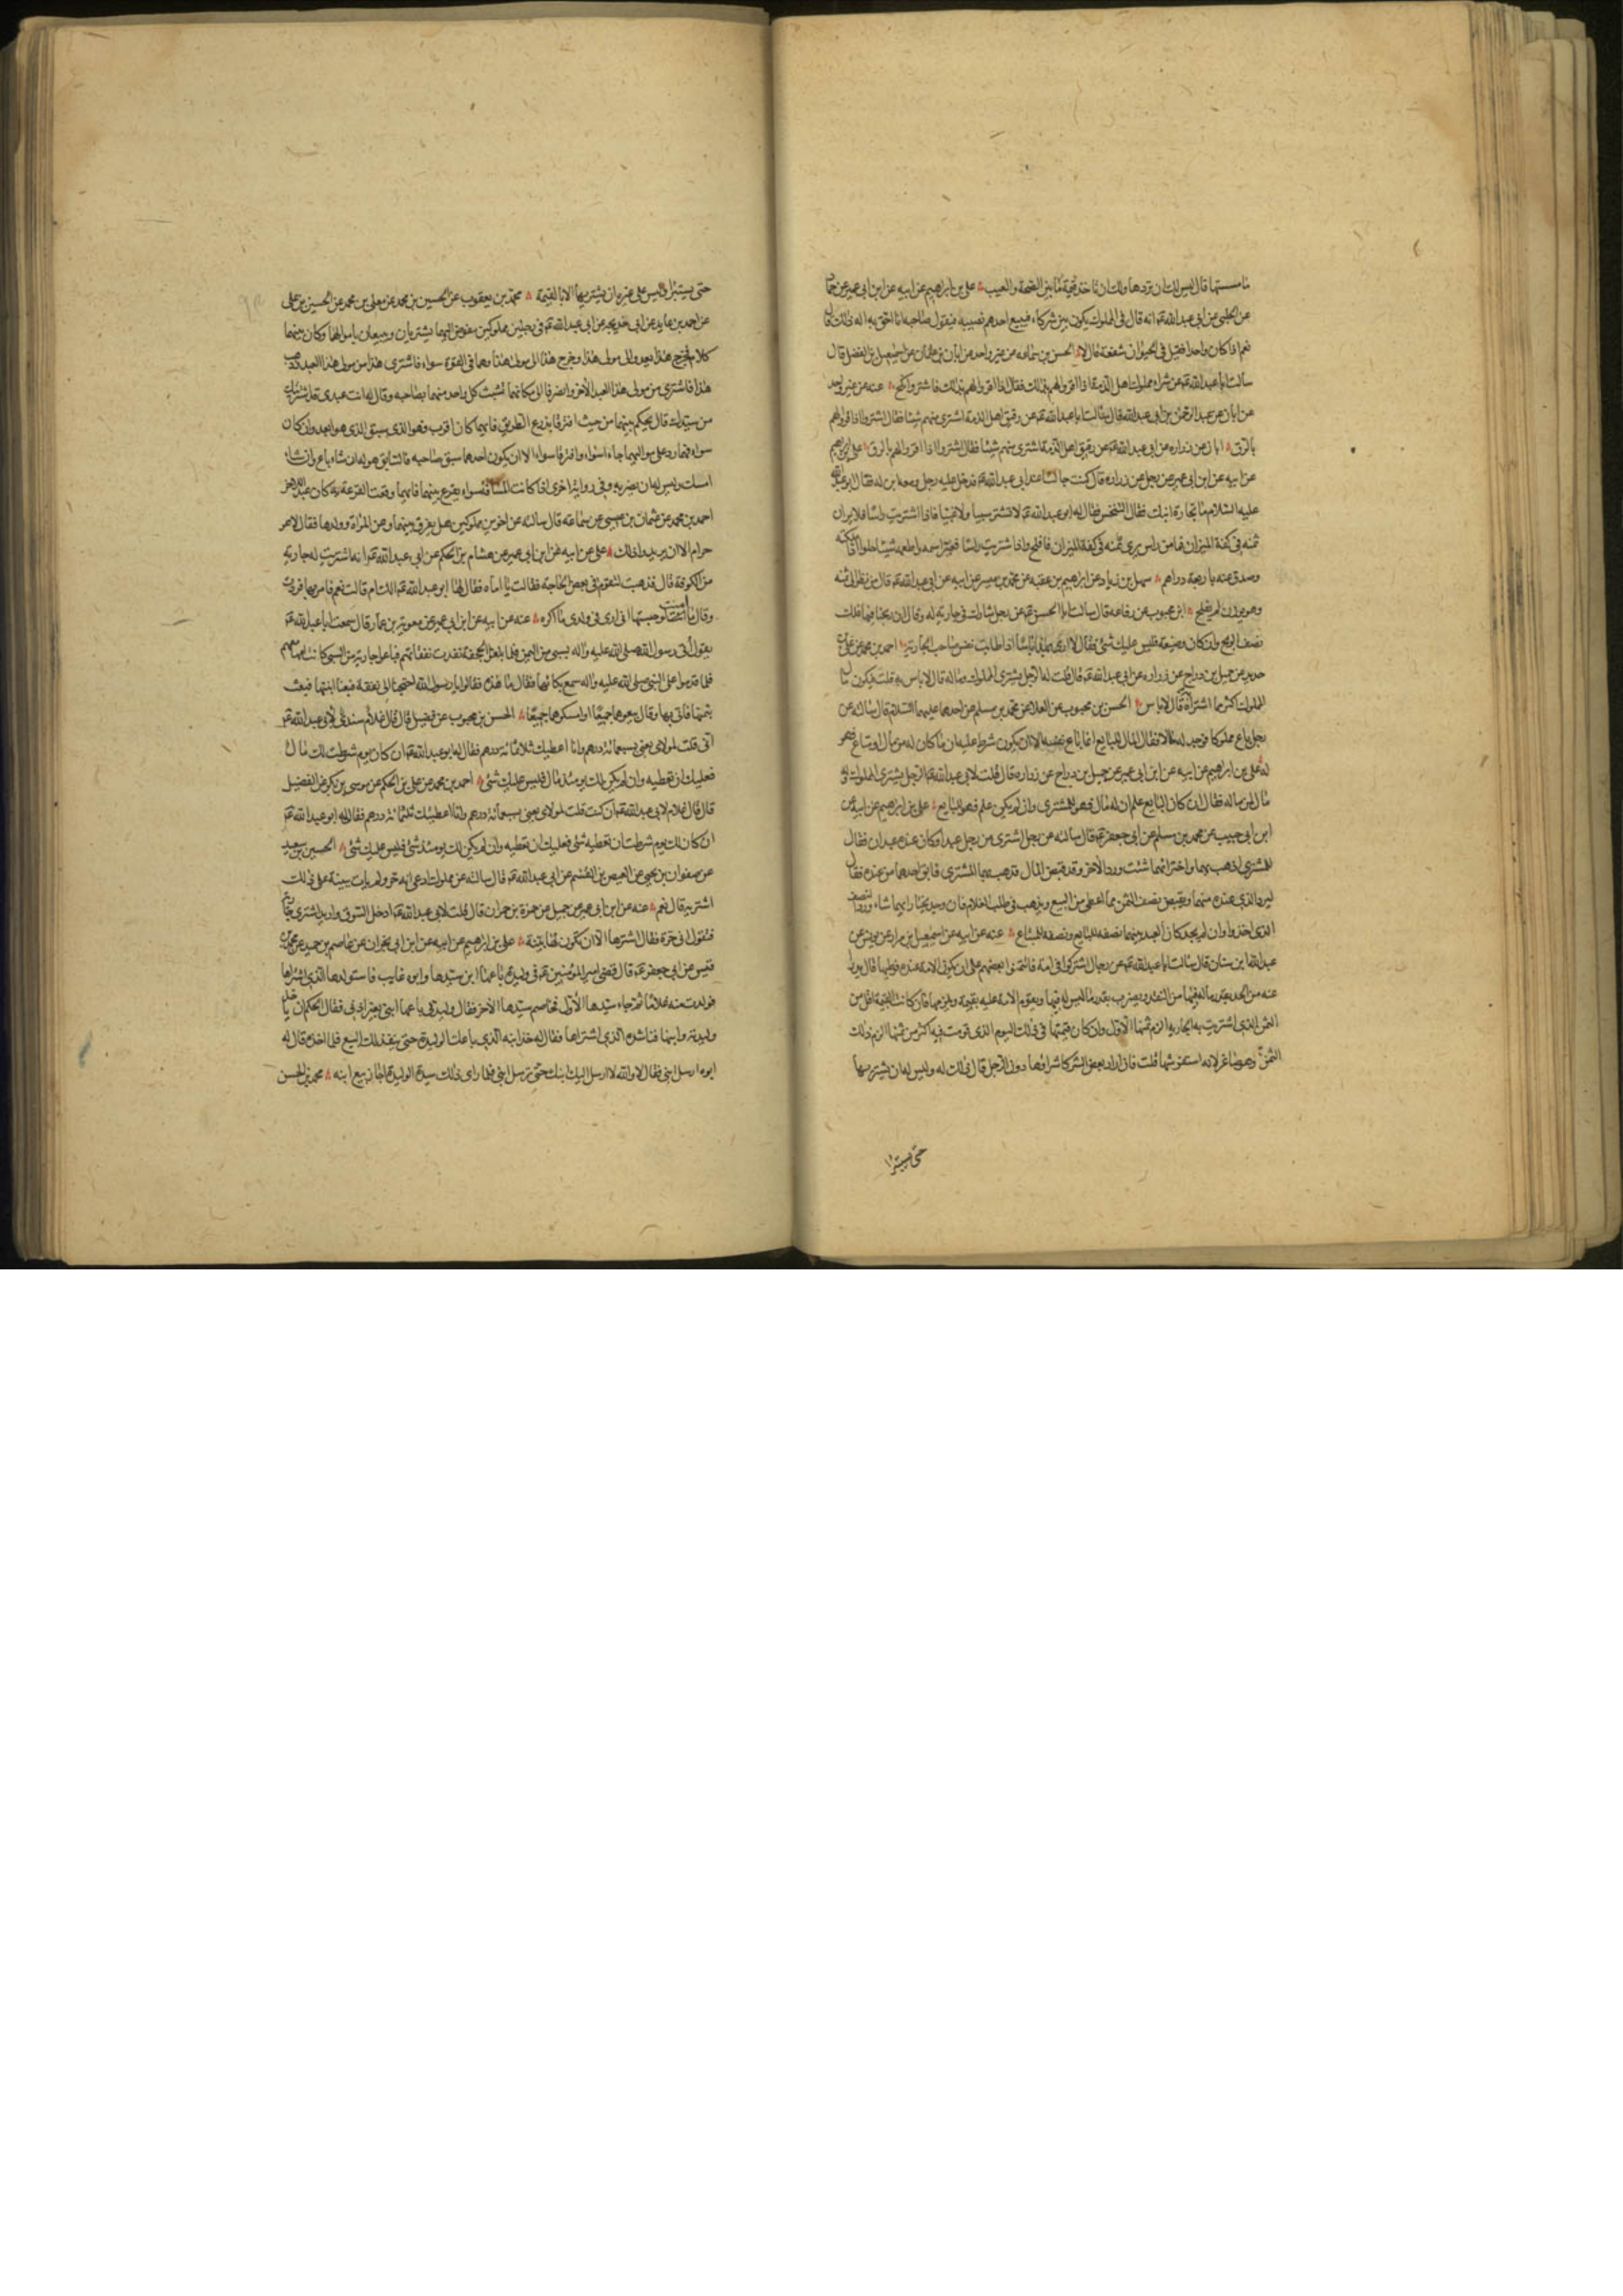 ما مسستها قال ليس لك ان تردها ولك ان تاخذ قيمة ما بين الصحة والعيب علي بن ابراهيم عن ابيه عن ابن ابي عمير عن حماد
عن الحلبي عن ابي عبد الله ع انه قال في المملوك يكون بين شركاء فيبيع احدهم نصيبه فيقول صاحبه انا احق به اله ذلك قال
نعم اذا كان واحدا فقيل في الحيوان شفعة قال لا الحسن بن سماعه عن غير واحد عن ابان بن عثمان عن اسمعيل بن الفضل قال
سالت ابا عبد الله ع عن شراء مملوك اهل الذمة اذا اقروا لهم بذلك فقال اذا اقروا لهم بذلك فاشتر وانكح عنه عن غير واحد
عن ابان عن عبد الرحمن بن ابي عبد الله قال سالت ابا عبد الله ع عن رقيق اهل الذمة اشتري منهم شيئا فقال اشتر اذا اقروا لهم
بالرق ابان عن زراره عن ابي عبد الله ع عن رقيق اهل الذمة اشتري منهم شيئا فقال اشتر اذا اقروا لهم بالرق علي بن ابراهيم
عن ابيه عن ابن ابي عمير عن رجل عن زراره قال كنت جالسا عند ابي عبد الله ع فدخل عليه رجل ومعه ابن له فقال ابو عبد الله
عليه السلام ما تجارة ابنك فقال التنخس فقال له ابو عبد الله ع لا تشتر سبيا ولا عيبا فاذا اشتريت راسا فلا يرين
ثمنه في كفة الميزان فما من راس يرى ثمنه في كفة الميزان فافلح واذا اشتريت راسا فغير اسمه واطعمه شيئا حلوا اذا ملكته
وصدق عنه باربعة دراهم سهل بن زياد عن ابراهيم بن عقبه عن محمد بن ميسر عن ابيه عن ابي عبد الله ع قال من نظر الى ثمنه
وهو يوزن لم يفلح ابن محبوب عن رفاعه قال سالت ابا الحسن ع عن رجل شارك في جارية له وقال ان ربحنا فيها فلك
نصف الربح وان كان وضيعة فليس عليك شئ فقال لا ارى بهذا باسا اذا طابت نفس صاحب الجارية احمد بن محمد عن علي بن
حديد عن جميل بن دراج عن زراره عن ابي عبد الله ع قال قلت له الرجل يشتري المملوك وماله قال لا باس به قلت فيكون مال
المملوك اكثر مما اشتراه قال لا باس الحسن بن محبوب عن العلا عن محمد بن مسلم عن احدهما عليهما السلام قال سالته عن
رجل باع مملوكا فوجد له مالا فقال المال للبايع انما باع نفسه الا ان يكون شرط عليه ان ما كان له من مال او متاع فهو
له علي بن ابراهيم عن ابيه عن ابن ابي عمير عن جميل بن دراج عن زراره قال قلت لابي عبد الله ع الرجل يشتري المملوك وله
مال لمن ماله فقال ان كان البايع علم ان له مال فهو للمشتري وان لم يكن علم فهو للبايع علي بن ابراهيم عن ابيه عن
ابن ابي حبيب عن محمد بن مسلم عن ابي جعفر ع قال سالته عن رجل اشترى من رجل عبدا وكان عنده عبدان فقال
للمشتري اذهب بهما واختر ايهما شئت ورد الاخر وقد قبض المال فذهب بهما المشتري فابق احدهما من عنده فقال
ليرد الذي عنده منهما ويقبض نصف الثمن مما اعطى من البيع ويذهب في طلب الغلام فان وجد يختار ايهما شاء ورد النصف
الذي اخذ وان لم يجد كان العبد بينهما نصفه للبايع ونصفه للمبتاع عنه عن ابيه عن اسمعيل بن مرار عن يونس عن
عبد الله ابن سنان قال سالت ابا عبد الله ع عن رجال اشتركوا في امة فائتمنوا بعضهم على ان تكون الامة عنده فوطيها قال يدرا
عنه من الحد بقدر ماله فيها من النقد ويضرب بقدر ما ليس له فيها ويقوم الامة عليه بقيمة ويلزمها فان كانت القيمة اقل من
الثمن الذي اشتريت به الجاريه الزم ثمنها الاول وان كان قيمتها في ذلك اليوم الذي قومت فيه اكثر من ثمنها الزم ذلك
الثمن وهو صاغر لانه استفرشها قلت فان اراد بعض الشركا شراؤها دون الرجل قال ذلك له وليس له ان يشتريها
حتى يستبرا
حتى يستبرا وليس على غيره ان يشتريها الا بالقيمة محمد بن يعقوب عن الحسين بن محمد عن معلى بن محمد عن الحسين بن علي
عن احمد بن عايد عن ابي خديجه عن ابي عبد الله ع في رجلين مملوكين مفوض اليهما يشتريان ويبيعان باموالهما وكان بينهما
كلام فخرج هذا يعدو الى مولى هذا وخرج هذا الى مولى هذا وهما في القوة سواء فاشترى هذا من مولى هذا العبد وذهب
هذا فاشترى من مولى هذا العبد الاخر وانصرفا الى مكانهما تشبث كل واحد منهما بصاحبه وقال له انت عبدي قد اشتريتك
من سيدك قال يحكم بينهما من حيث افترقا بذرع الطريق فايهما كان اقرب فهو الذي سبق الذي هو ابعد وان كان
سواء فهما رد على مواليهما جاءا سواء وافترقا سواء الا ان يكون احدهما سبق صاحبه فالسابق هو له ان شاء باع وان شاء
امسك وليس له ان يضربه وفي رواية اخرى اذا كانت المسافة سواء يقرع بينهما فايهما وقعت القرعة به كان عبد الاخر
احمد بن محمد عن عثمان بن عيسى عن سماعه قال سالته عن اخوين مملوكين هل يفرق بينهما وعن المراة وولدها فقال لا هو
حرام الا ان يريدوا ذلك علي عن ابيه عن ابن ابي عمير عن هشام بن الحكم عن ابي عبد الله ع انه اشتريت له جارية
من الكوفة قال فذهبت لتقوم في بعض الحاجة فقالت يا اماه فقال لها ابو عبد الله ع الك ام قالت نعم فامر بها فردت
وقال ما امنت لو حبستها ان ارى في ولدي ما اكره عنه عن ابيه عن ابن ابي عمير عن معوية بن عمار قال سمعت ابا عبد الله ع
يقول اتي رسول الله صلى الله عليه واله بسبي من اليمن فلما بلغوا الجحفة نفدت نفقاتهم فباعوا جارية من السبي كانت امها معهم
فلما قدموا على النبي صلى الله عليه واله سمع بكائها فقال ما هذه فقالوا يا رسول الله احتجنا الى نفقة فبعنا ابنتها فبعث
بثمنها فاتى بها وقال بيعوهما جميعا او امسكوهما جميعا الحسن بن محبوب عن فضيل قال قال غلام سندي لابي عبد الله ع
اني قلت لمولاي بعني بسبعمائة درهم وانا اعطيك ثلاثمائة درهم فقال له ابو عبد الله ع ان كان يوم شرطت لك مال
فعليك ان تعطيه وان لم يكن لك يومئذ مال فليس عليك شئ احمد بن محمد عن علي بن الحكم عن موسى بن بكر عن الفضيل
قال قال غلام لابي عبد الله ع اني كنت قلت لمولاي بعني بسبعمائة درهم وانا اعطيك ثلثمائة درهم فقال له ابو عبد الله ع
ان كان لك يوم شرطت ان تعطيه شئ فعليك ان تعطيه وان لم يكن لك يومئذ شئ فليس عليك شئ الحسين بن سعيد
عن صفوان بن يحيى عن العيص بن القسم عن ابي عبد الله ع قال سالته عن مملوك ادعى انه حر ولم يات ببينة على ذلك
اشتريه قال نعم عنه عن ابن ابي عمير عن جميل عن حمزة بن حمران قال قلت لابي عبد الله ع ادخل السوق واريد اشتري جارية
فتقول اني حرة فقال اشترها الا ان تكون لها بينة علي بن ابراهيم عن ابيه عن ابن ابي نجران عن عاصم بن حميد عن محمد بن
قيس عن ابي جعفر ع قال قضى امير المؤمنين ع في وليدة باعها ابن سيدها وابوه غايب فاستولدها الذي اشتراها
فولدت منه غلاما ثم جاء سيدها الاول فخاصم سيدها الاخر فقال وليدتي باعها ابني بغير اذني فقال الحكم ان ياخذ
وليدته وابنها فناشده الذي اشتراها فقال له خذ ابنه الذي باعك الوليدة حتى ينفذ لك البيع فلما اخذه قال له
ابوه ارسل ابني فقال لا والله لا ارسل اليك ابنك حتى ترسل ابني فلما راى ذلك سيد الوليدة اجاز بيع ابنه محمد بن الحسن